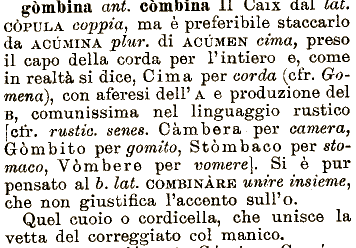 gòmbina ant. còmbina Il Caix dal lat.
CÒPULA coppia, ma è preferibile staccarlo
da ACÚMINA plur. di ACÚMEN cima, preso
il capo della corda per l'intiero e, come
in realtà si dice, Cima per corda (cfr. Go-
mena), con aferesi dell'A e produzione del
B, comunissima nel linguaggio rustico
[cfr. rustic. senes. Càmbera per camera,
Gòmbito per gomito, Stòmbaco per sto-
maco, Vòmbere per vomere]. Si è pur
pensato al b. lat. COMBINÀRE unire insieme,
che non giustifica l'accento sull'o.
Quel cuoio o cordicella, che unisce la
vetta del correggiato col manico.